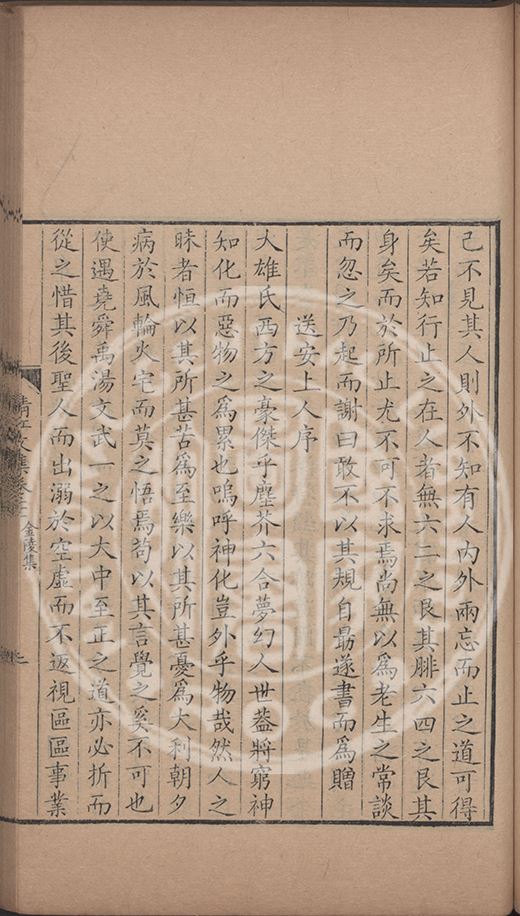 己不見其人則外不知有人內外兩忘而止之道可得
矣若知行止之在人者無六二之艮其腓六四之艮其
身矣而於所止尤不可不求焉尚無以爲老生之常談
而忽之乃起而謝曰敢不以其規自勗遂書而爲贈
送安上人序
大雄氏西方之豪傑乎塵芥六合夢幻人世蓋將窮神
知化而惡物之爲累也嗚呼神化豈外乎物哉然人之
昧者恒以其所甚苦爲至樂以其所甚憂爲大利朝夕
病於風輪火宅而莫之悟焉茍以其言覺之奚不可也
使遇堯舜禹湯文武一之以大中至正之道亦必折而
從之惜其後聖人而出溺於空虛而不返視區區事業
清江文集卷二 金陵集